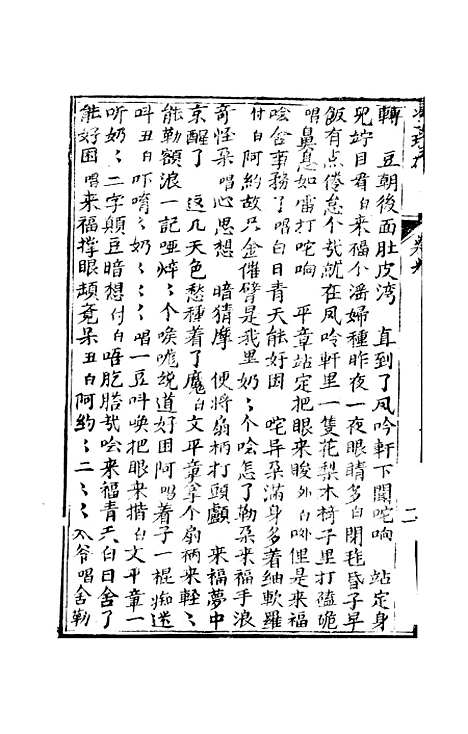 轉　豆朝後面肚皮湾　直到了鳳吟軒下閣咤响　站定身
兒竚目看白来福个潘婦種昨夜一夜眼睛多白閉毪昏子早
飯有点倦怠个哉就在鳳吟軒里一隻花梨木椅子里打磕𥉻
唱鼻息如雷打咤响　平章站定把眼来睃外白㖿俚是来福
唅舍事務了唱白日青天能好困　咤异朵滿身多着紬軟羅
付白阿約故只金催臂是我里奶〻个唅怎了勒朵来福手浪
奇怪朵唱心思想　暗猜摩　便將扇柄打頭顱　来福夢中
京醒了　这几天色愁種着了魔白文平章拿个扇柄来輕〻
能勒額浪一記啞焠〻个喚嘴説道好困阿唱着子一棍痴迷
呌丑白吓唷〻奶〻〻〻唱一豆呌喚把眼来揩白文平章一
听奶〻二字顛豆暗想付白唔肐𦚾哉唅来福青天白日舍了
能好困唱来福撑眼頡竟呆丑白阿約〻二〻〻大爷唱舍勒
二